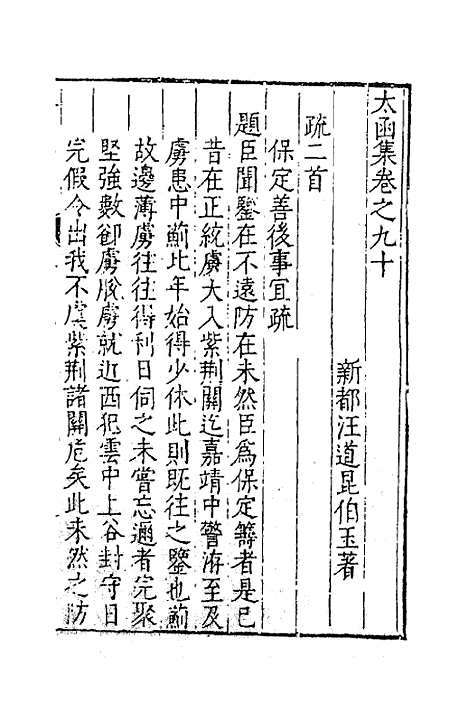 太函集卷之九十
新都汪道昆伯玉著
疏二首
保定善後事宜疏
題臣聞鑒在不遠防在未然臣爲保定籌者是已
昔在正統虜大入紫荆關迄嘉靖中警洊至及
虜患中薊比年始得少休此則既往之鑒也薊
故邊薄虜往往得利日伺之未嘗忘邇者完聚
堅強數卻虜虜就近西犯雲中上谷封守日
完假令出我不虞紫荆諸關危矣此未然之防